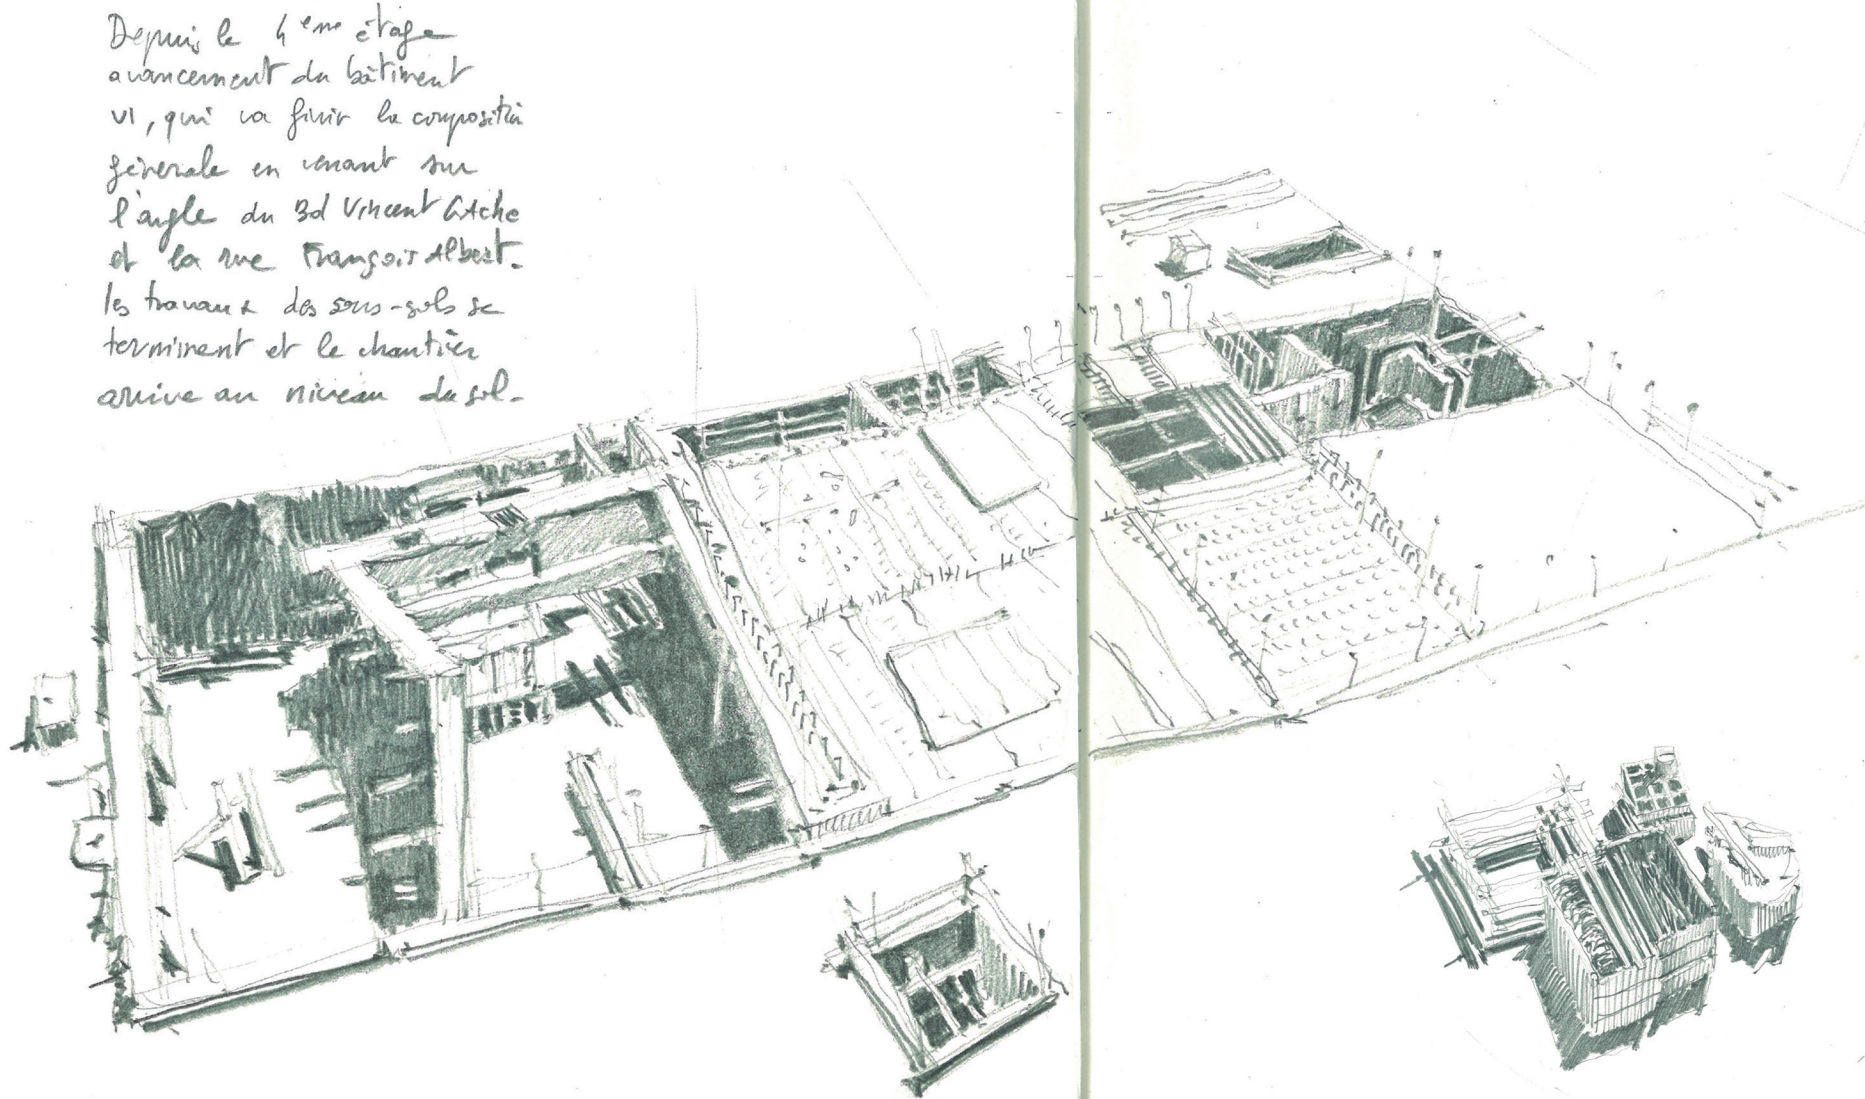 Depuis le 4ème étage
avancement du bâtiment
VI, qui va finir la composition
générale en venant sur
l'angle du Bd Vincent Gâche
et la rue François Albert.
les travaux des sous-sols se
terminent et le chantier
arrive au niveau du sol.